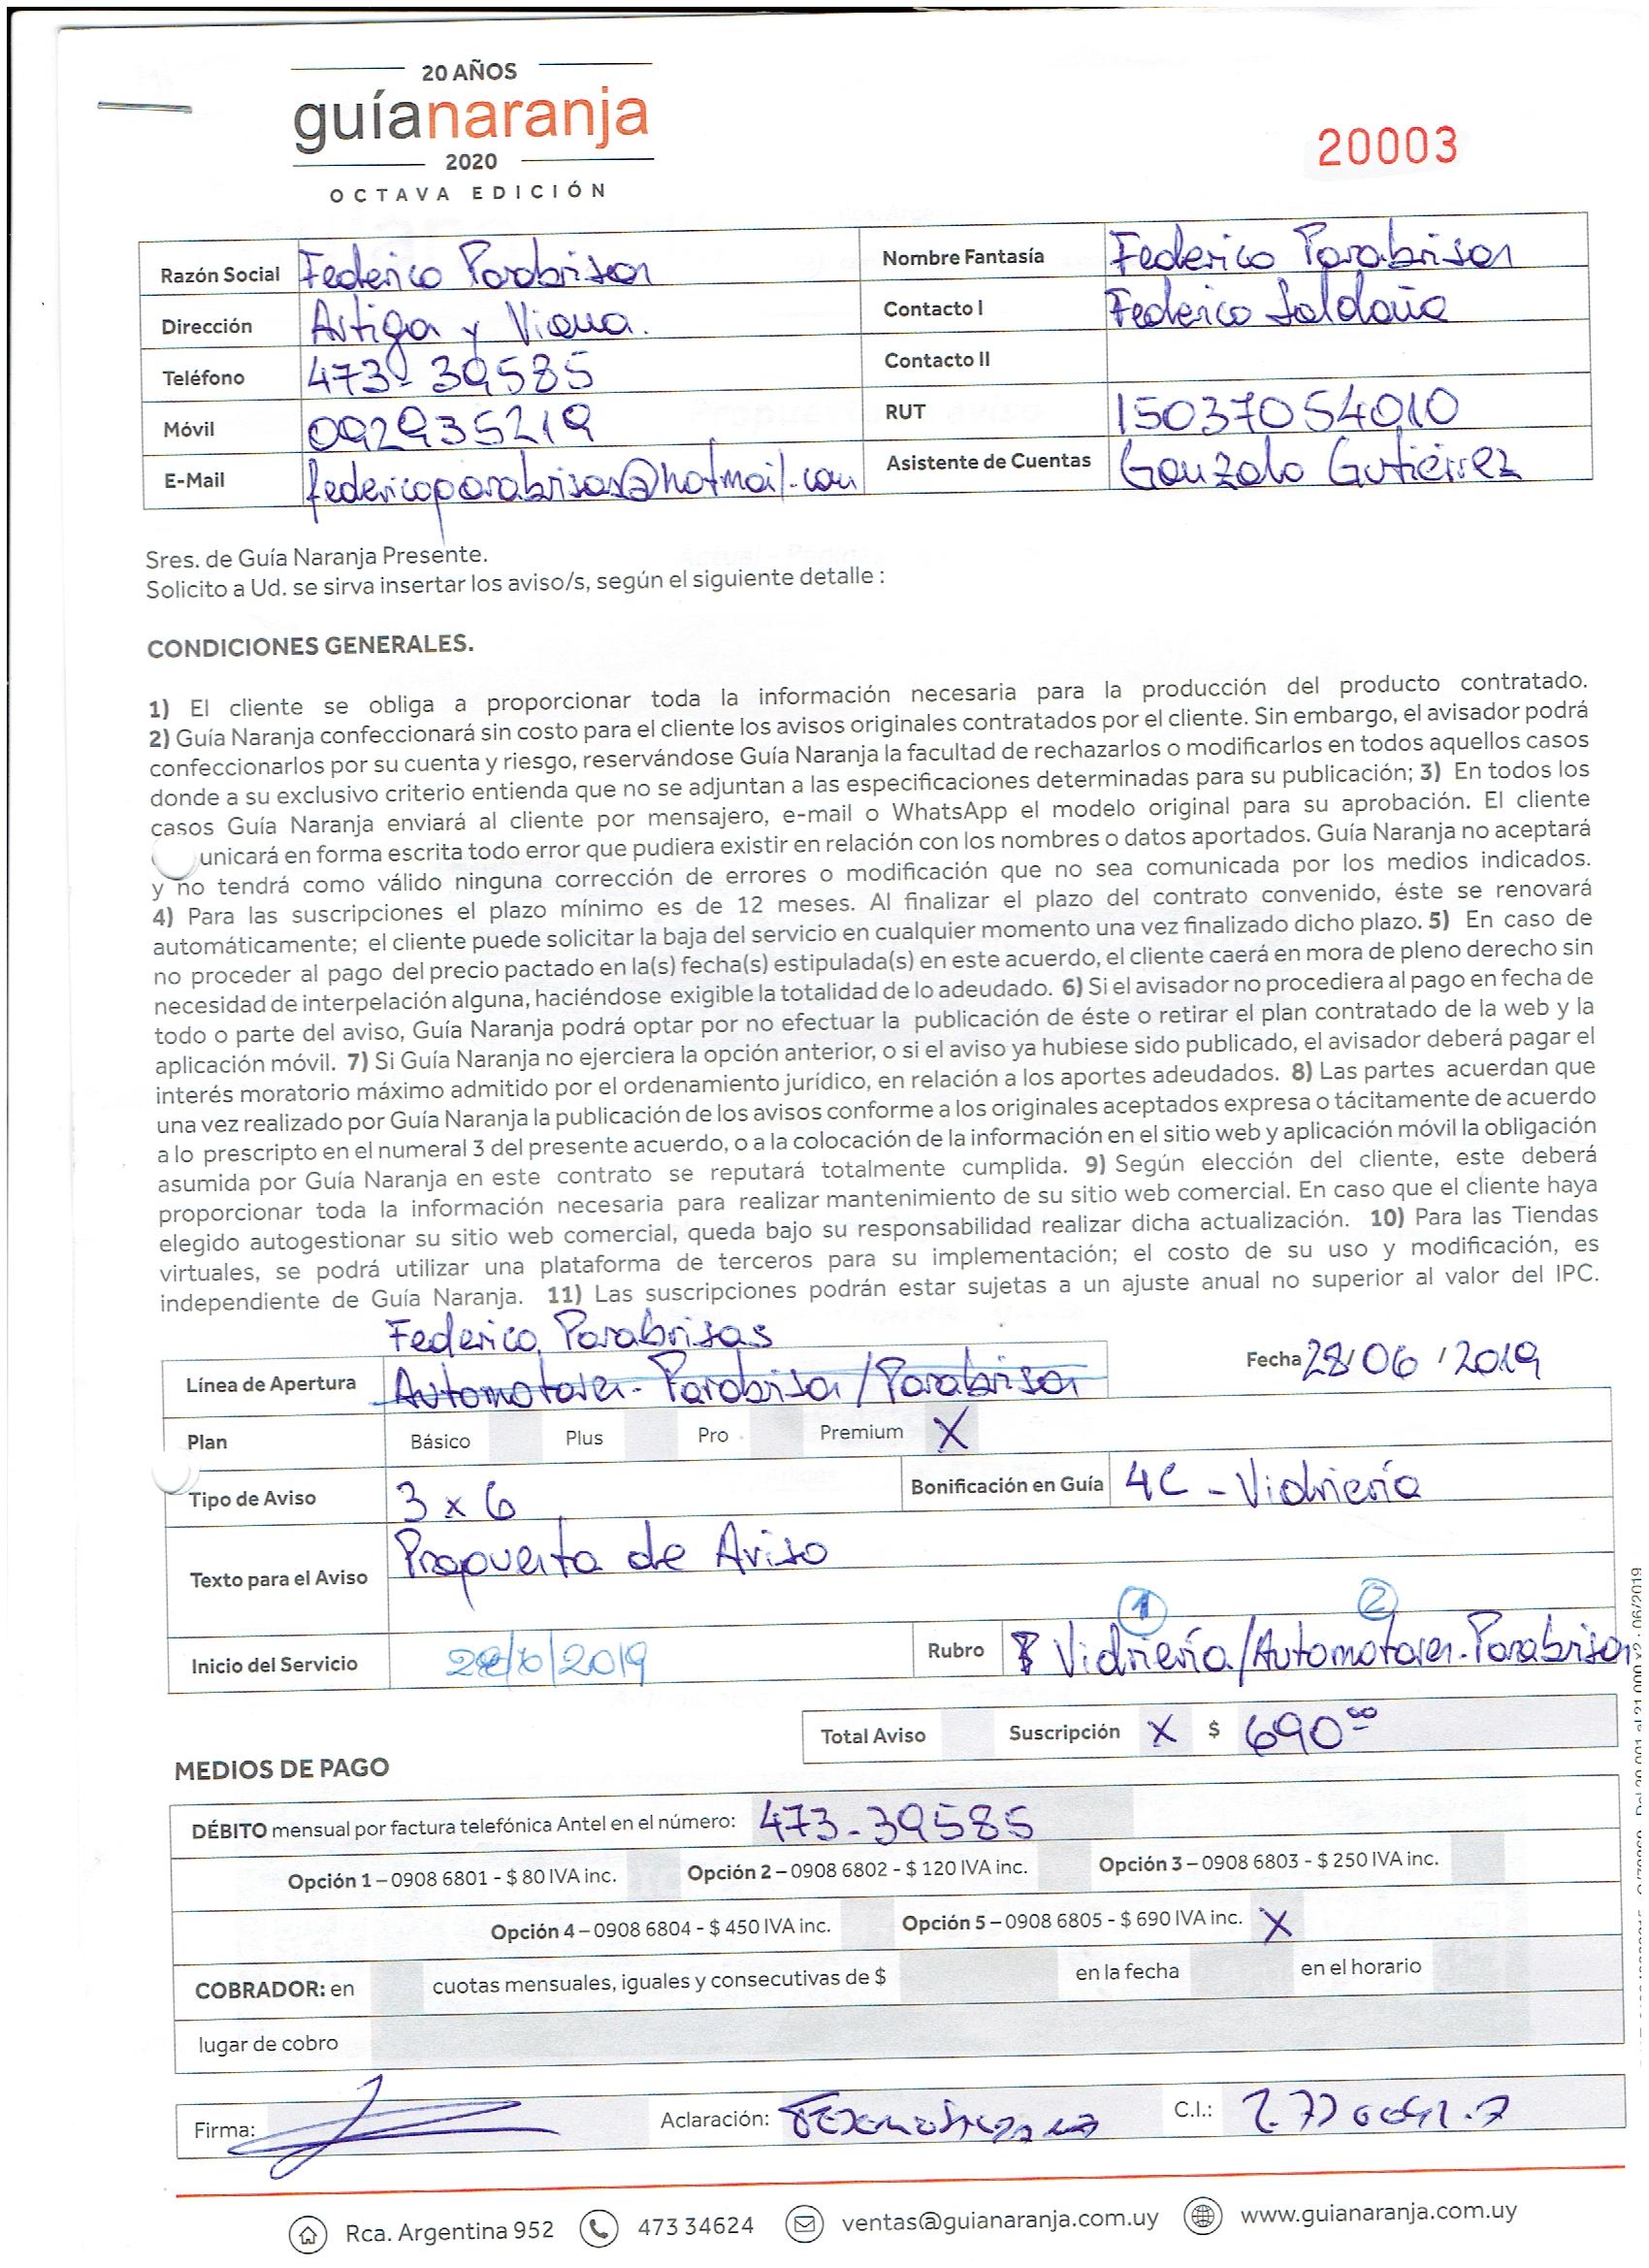 20 AÑOS
guíanaranja
2020
OCTAVA EDICIÓN
20003
Razón Social Federico Parabrisas Nombre Fantasía Federico Parabrisas
Dirección Artigas y Viana. Contacto I Federico Saldaña
Teléfono 473-39585 Contacto II
Móvil 092935219 RUT 150370540010
E-Mail federicoparabrisas@hotmail.com Asistente de Cuentas Gonzalo Gutiérrez
Sres. de Guía Naranja Presente.
Solicito a Ud. se sirva insertar los aviso/s, según el siguiente detalle :
CONDICIONES GENERALES.
1) El cliente se obliga a proporcionar toda la información necesaria para la producción del producto contratado.
2) Guía Naranja confeccionará sin costo para el cliente los avisos originales contratados por el cliente. Sin embargo, el avisador podrá
confeccionarlos por su cuenta y riesgo, reservándose Guía Naranja la facultad de rechazarlos o modificarlos en todos aquellos casos
donde a su exclusivo criterio entienda que no se adjuntan a las especificaciones determinadas para su publicación; 3) En todos los
casos Guía Naranja enviará al cliente por mensajero, e-mail o WhatsApp el modelo original para su aprobación. El cliente
unicará en forma escrita todo error que pudiera existir en relación con los nombres o datos aportados. Guía Naranja no aceptará
y no tendrá como válido ninguna corrección de errores o modificación que no sea comunicada por los medios indicados.
4) Para las suscripciones el plazo mínimo es de 12 meses. Al finalizar el plazo del contrato convenido, éste se renovará
automáticamente; el cliente puede solicitar la baja del servicio en cualquier momento una vez finalizado dicho plazo. 5) En caso de
no proceder al pago del precio pactado en la(s) fecha(s) estipulada(s) en este acuerdo, el cliente caerá en mora de pleno derecho sin
necesidad de interpelación alguna, haciéndose exigible la totalidad de lo adeudado. 6) Si el avisador no procediera al pago en fecha de
todo o parte del aviso, Guía Naranja podrá optar por no efectuar la publicación de éste o retirar el plan contratado de la web y la
aplicación móvil. 7) Si Guía Naranja no ejerciera la opción anterior, o si el aviso ya hubiese sido publicado, el avisador deberá pagar el
interés moratorio máximo admitido por el ordenamiento jurídico, en relación a los aportes adeudados. 8) Las partes acuerdan que
una vez realizado por Guía Naranja la publicación de los avisos conforme a los originales aceptados expresa o tácitamente de acuerdo
a lo prescripto en el numeral 3 del presente acuerdo, o a la colocación de la información en el sitio web y aplicación móvil la obligación
asumida por Guía Naranja en este contrato se reputará totalmente cumplida. 9) Según elección del cliente, este deberá
proporcionar toda la información necesaria para realizar mantenimiento de su sitio web comercial. En caso que el cliente haya
elegido autogestionar su sitio web comercial, queda bajo su responsabilidad realizar dicha actualización. 10) Para las Tiendas
virtuales, se podrá utilizar una plataforma de terceros para su implementación; el costo de su uso y modificación, es
independiente de Guía Naranja. 11) Las suscripciones podrán estar sujetas a un ajuste anual no superior al valor del IPC.
Federico Parabrisas
Línea de Apertura Automotores-Parabrisas/Parabrisas Fecha 28/06/2019
Plan Básico Plus Pro Premium X
Tipo de Aviso 3x6 Bonificación en Guía 4C - Vidriería
Texto para el Aviso Propuesta de Aviso
1 2
Inicio del Servicio Rubro Vidriería/Automotores-Parabrisas
Total Aviso Suscripción X $ 690,00
MEDIOS DE PAGO
DÉBITO mensual por factura telefónica Antel en el número: 473-39585
Opción 1 – 0908 6801 - $ 80 IVA inc. Opción 2 – 0908 6802 - $ 120 IVA inc. Opción 3 – 0908 6803 - $ 250 IVA inc.
Opción 4 – 0908 6804 - $ 450 IVA inc. Opción 5 – 0908 6805 - $ 690 IVA inc. X
COBRADOR: en cuotas mensuales, iguales y consecutivas de $ en la fecha en el horario
lugar de cobro
Firma: Aclaración: C.I.:
Rca. Argentina 952 473 34624 ventas@guianaranja.com.uy www.guianaranja.com.uy